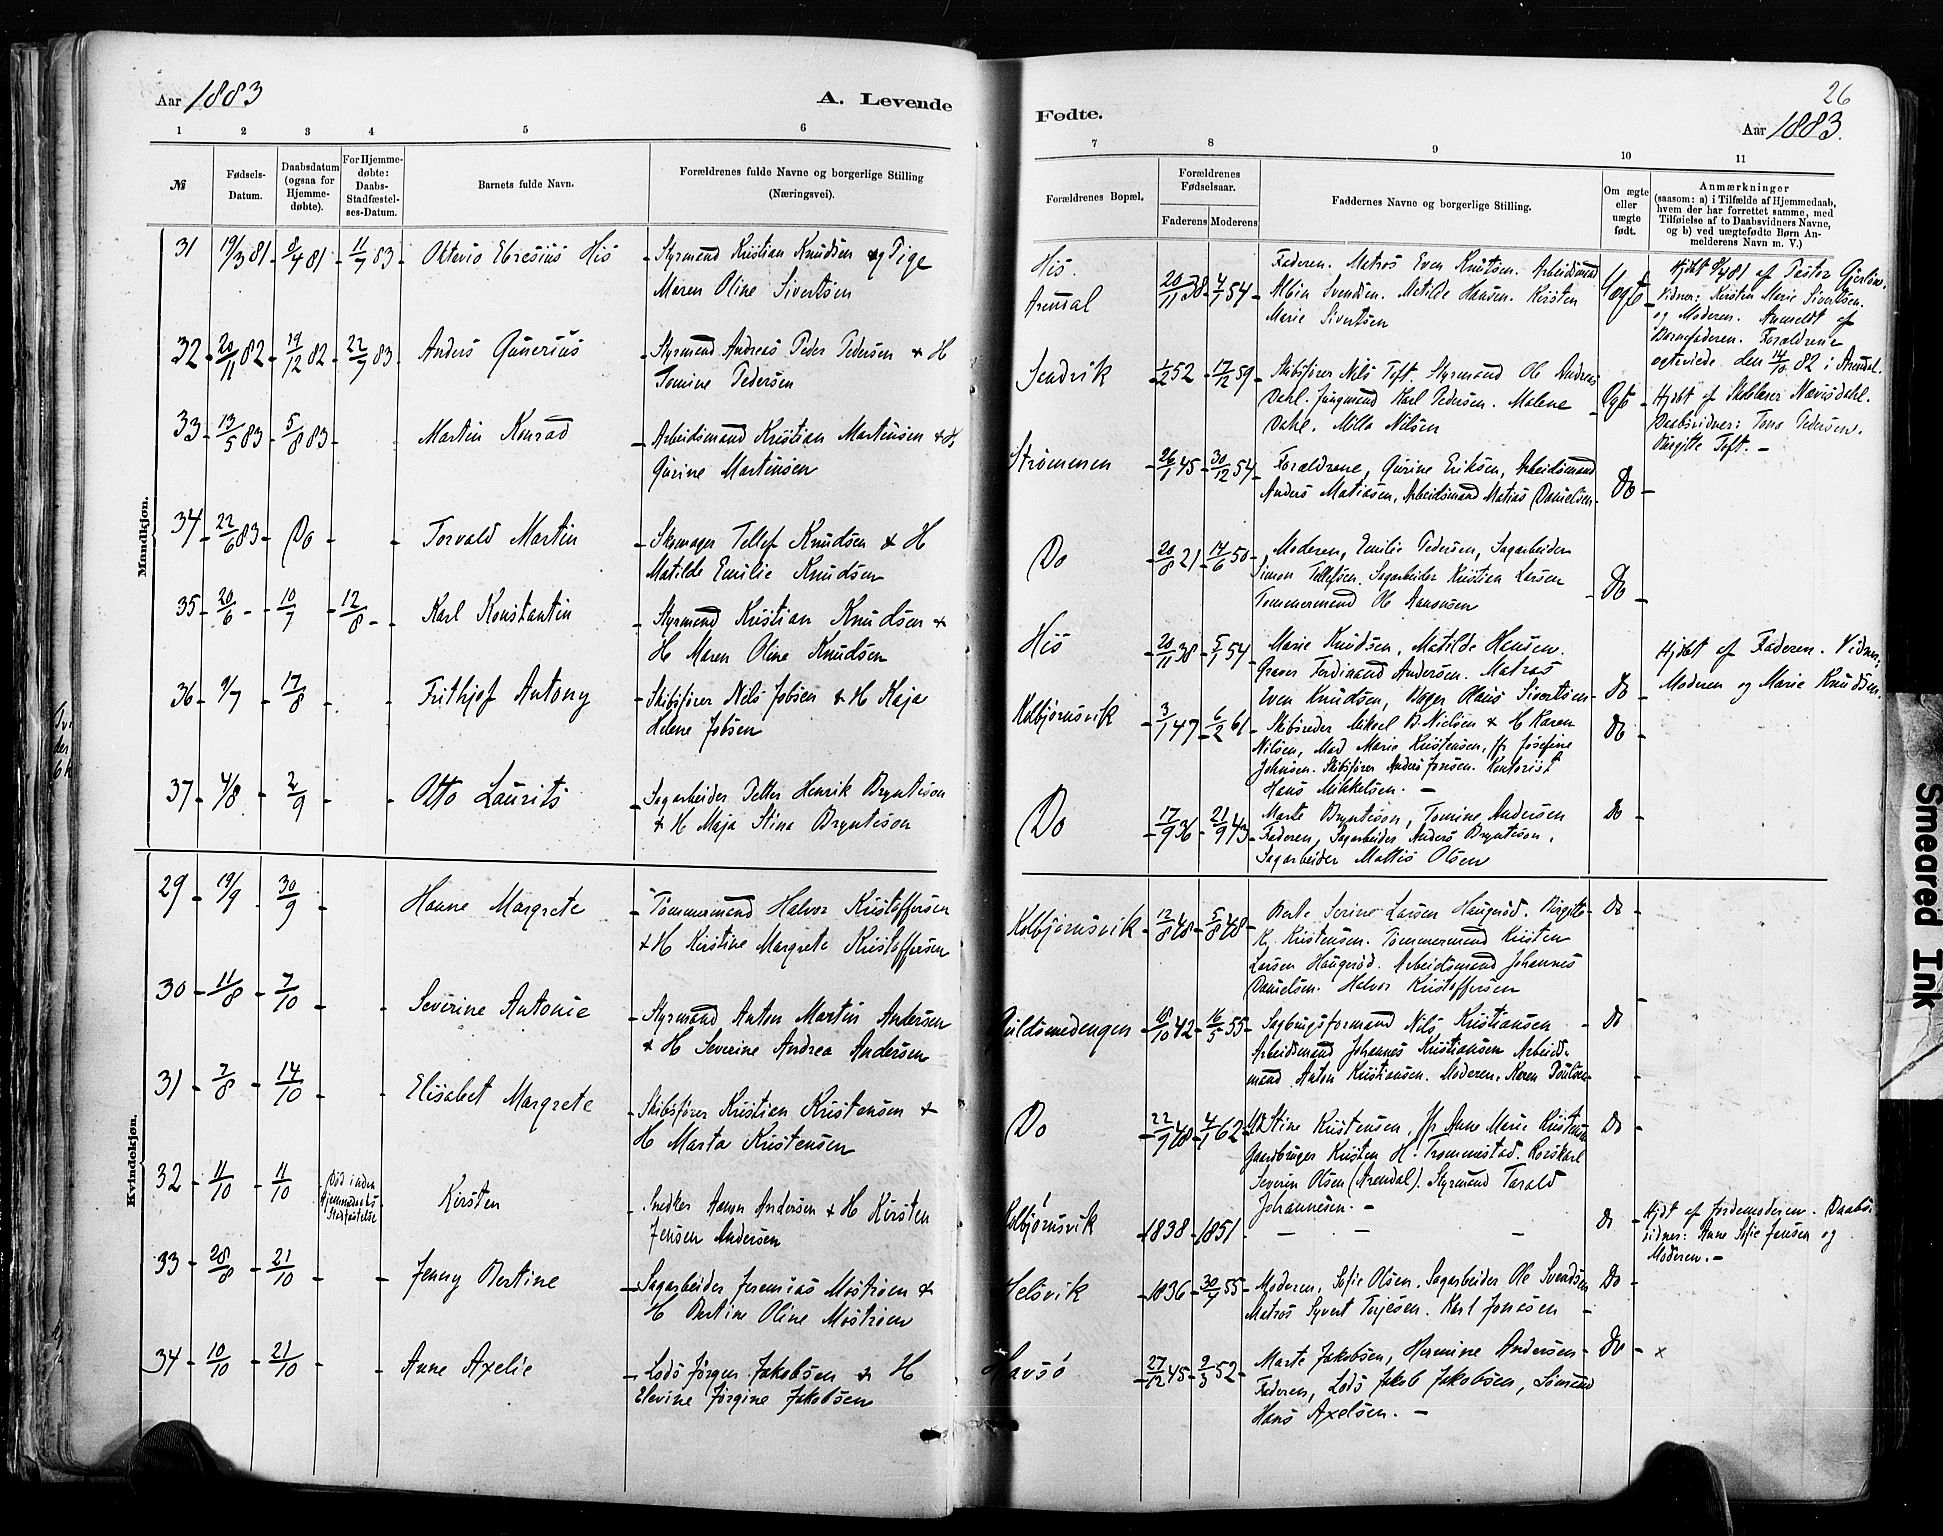 Aar 1883
A. Levende
1 2 3 4 5 6
№
Fødsels-
Datum.
Daabsdatum
(ogsaa for
Hjemme-
døbte).
For Hjemme-
døbte:
Daabs-
Stadfæstel-
ses-Datum.
Barnets fulde Navn.
Forældrenes fulde Navne og borgerlige Stilling
(Næringsvei).
Mandkjøn.
31 19/3 81 8/4 81 11/7 83 His Styrmand Kristian Knudsen og Pige
Maren Oline Sivertsen
32 20/11 82 19/12 82 22/7 83 Anders Gunerius Styrmand Andreas Peder Pedersen & H
Tomine Pedersen
33 13/5 83 5/8 83 Martin Konrad Arbeidsmand Kristian Martinsen & H
Gurine Martinsen
34 22/6 83 Do Torvald Martin Skomager Tellef Knudsen & H
Matilde Emilie Knudsen
35 20/6 10/7 12/8 Karl Konstantin Styrmand Kristian Knudsen &
H Maren Oline Knudsen
36 9/7 17/8 Frithjof Antony Skibsfører Nils Jobsen & H Kaja
Helene Jobsen
37 4/8 2/9 Otto Laurits Sagarbeider Petter Henrik Brynteson
& H Maja Stina Brynteson
Kvindekjøn.
29 19/9 30/9 Hanne Margrete Tømmermand Halvor Kristoffersen
& H Kirstine Margrete Kristoffersen
30 11/8 7/10 Severine Antonie Styrmand Anton Martin Andersen
& H Severine Andrea Andersen
31 7/8 14/10 Elisabet Margrete Skibsfører Kristian Kristensen &
H Marta Kristensen
32 11/10 11/10 Død inden
Hjemmedaabs
Stadfæstelse Kirsten Snedker Aanon Andersen & H Kirsten
Jensen Andersen
33 28/8 21/10 Jenny Bertine Sagarbeider Jeremias Mostrøm &
H Bertine Oline Mostrøm
34 10/10 21/10 Anne Axelie Lods Jørgen Jakobsen & H
Elevine Jørgine Jakobsen
26
Fødte.
Aar 1883.
7 8 9 10 11
Forældrenes Bopæl.
Forældrenes
Fødselsaar.
Faderens Moderens
Faddernes Navne og borgerlige Stilling.
Om ægte
eller
uægte
født.
Anmærkninger
(saasom: a) i Tilfælde af Hjemmedaab,
hvem der har forrettet samme, med
Tilføielse af to Daabsvidners Navne,
og b) ved uægtefødte Børn An-
melderens Navn m. V.)
His.
Arendal 20/11 38 4/1 54 Faderen. Matros Even Knutsen. Arbeidsmand
Albin Svendsen. Matilde Hansen. Kirsten
Marie Sivertsen
Uægte Hjdbt 8/4 81 af Pastor
Vidner: Kirsten Marie Sivertsen.
og Moderen. Anmeldt af
Barnefaderen. Forældrene
ægteviede den 14/10 82 i Arendal.
Sandvik 1/2 52 17/12 59 Skibsfører Nils Toft. Styrmand Ole Andreas
Dahl. Jungmand Karl Pedersen. Malene
Dahl. Milla Nilsen
Ægte Hjdbt af Skolelærer
Daabsvidner: Pedersen.
Birgitte Toft. —
Strømmen 26/1 45 30/12 54 Forældrene, Gurine Eriksen, Arbeidsmand
Anders Matiasen, Arbeidsmand Matias Danielsen Do
Do 20/8 21 14/6 50 Moderen, Emilie Pedersen, Sagarbeider
Simon Tellefsen. Sagarbeider Kristian Larsen
Tømmermand Ole Aanonsen Do
His 20/11 38 5/1 54 Marie Knudsen, Matilde Hansen.
Graver Ferdinand Andersen. Matros
Even Knudsen, Hans Sivertsen Do
Hjdbt af Faderen. Vidner:
Moderen og Marie Knudsen.
Kolbjørnsvik 3/1 47 6/2 61 Skibsreder Mikael B. Nielsen & H Karen
Nilsen, Mad. Marie Kristensen, Jfr Josefine
Johnsen. Skibsfører Anders Jonsen. Kontorist
Hans Mikkelsen. — Do
Do 17/9 36 21/9 43 Marte Bryntesson, Tomine Andersen
Faderen, Sagarbeider Anders Bryntesson.
Sagarbeider Mattis Olsen Do
Kolbjørnsvik 12/8 48 5/8 48 Berte Serine Larsen Haugerød. Birgitte
K. Kristensen. Tømmermand Kristen
Larsen Haugerød. Arbeidsmand Johannes
Danielsen. Halvor Kristoffersen Do
Guldsmedengen 42 16/5 55 Sagbrugsformand Nils Kristiansen
Arbeidsmand Johannes Kristiansen Arbeids-
mand Anton Kristiansen. Moderen. Karen Poulsen Do
Do 22/9 48 4/1 62 Stine Kristensen, Jfr Anne Marie Kristensen
Gaardbruger Kristen H. Trommestad. Rorskarl
Severin Olsen (Arendal). Styrmand Tarald
Johannesen. — Do
Kolbjørnsvik 1838 1851 — — — Do
Hjdt af Jordemoderen. Daabs-
vidner: Anne Sofie Jensen og
Moderen. —
Helsvik 1836 30/7 55 Moderen, Sofie Olsen. Sagarbeider Ole Svendsen
Matros Syvert Terjesen. Karl Jonesen Do
Havsø 27/12 45 9/3 52 Marte Jakobsen, Hermine Andersen
Faderen, Lods Jakob Jakobsen, Sømand
Hans Axelsen. — Do x
Smeared Ink